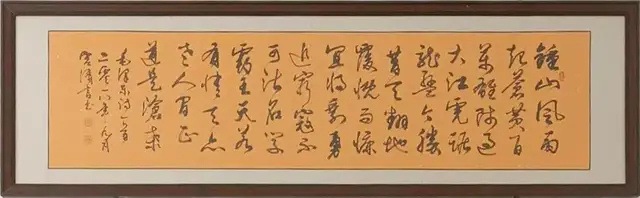 鍾山風雨
起蒼黃百
萬雄師過
大江虎踞
龍盤今勝
昔天翻地
覆慨而慷
宜將剩勇
追窮寇不
可沽名學
霸王天若
有情天亦
老人間正
道是滄桑
毛澤東詩一首
二零一八年